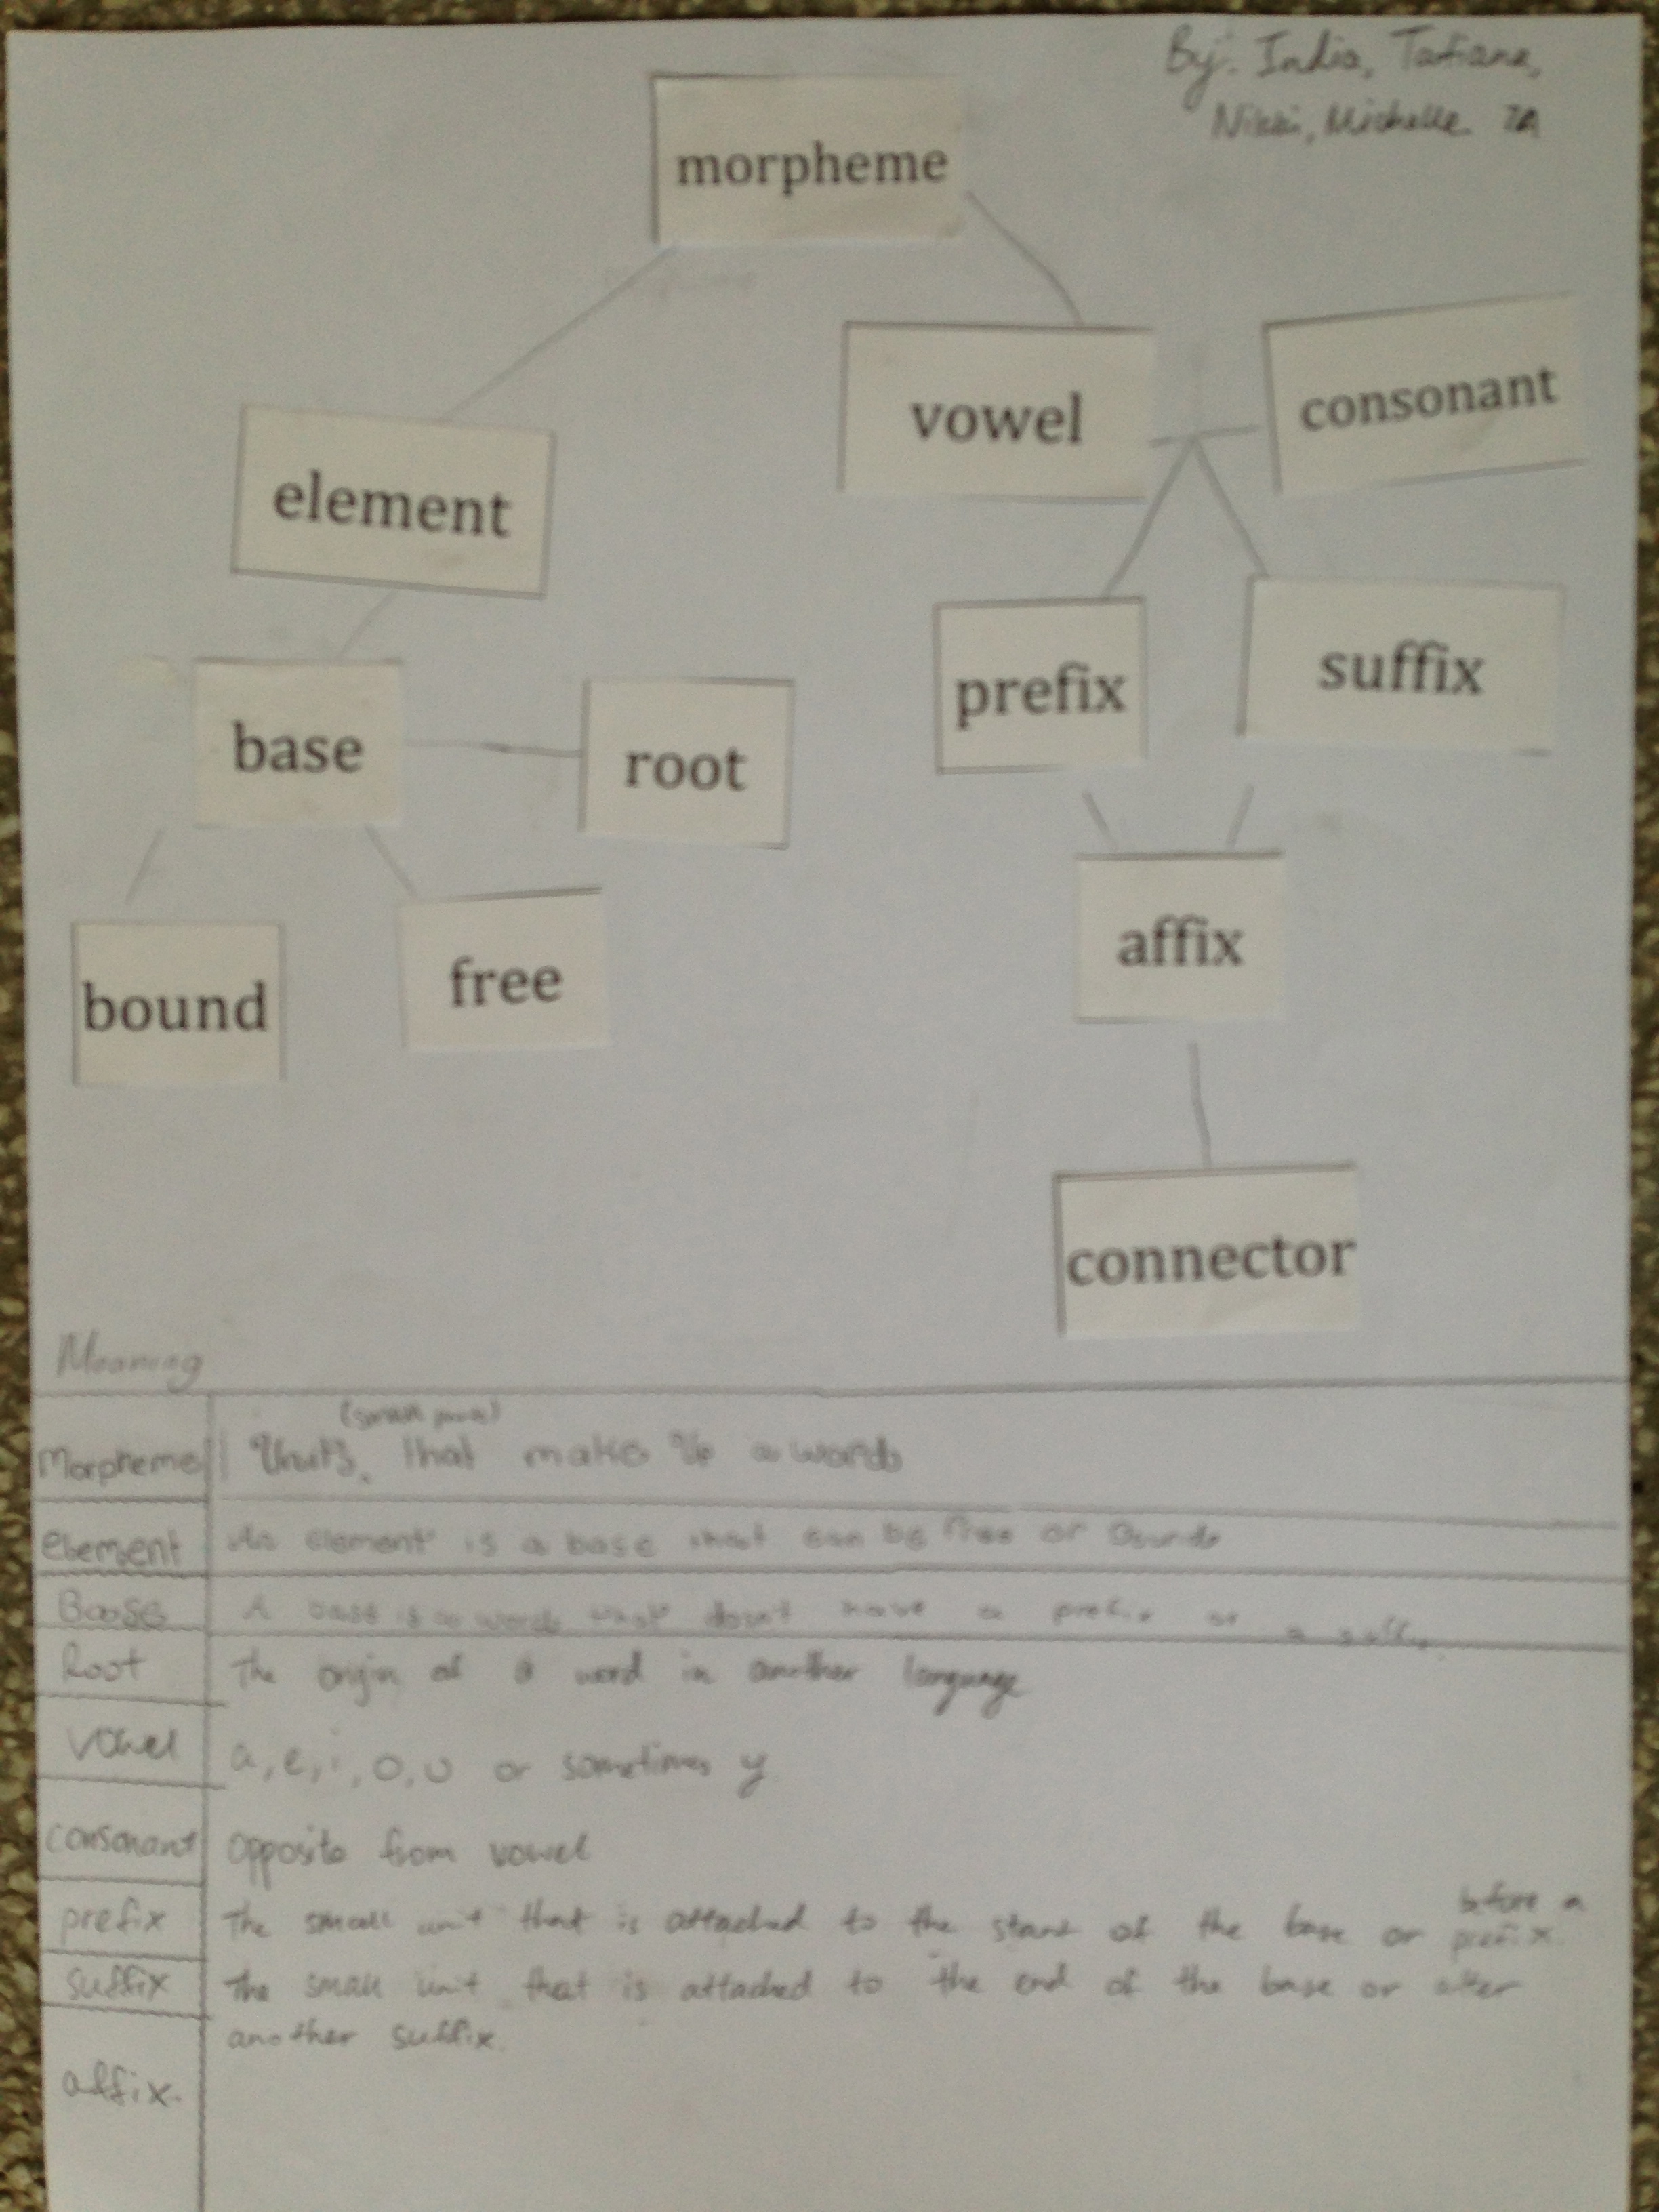 By: India, Tatiana,
Nikki, Michelle 7A
morpheme
vowel
consonant
element
prefix
suffix
base
root
affix
bound
free
connector
Meaning
(small parts)
Morpheme Units, that make up a word
element An element is a base that can be free or bound
Base A base is a word that don't have a prefix or a suffix
Root The origin of a word in another language
Vowel a, e, i, o, u or sometimes y
consonant opposite from vowel
before a
prefix The small unit that is attached to the start of the base or prefix.
suffix The small unit that is attached to the end of the base or after
another suffix.
affix.